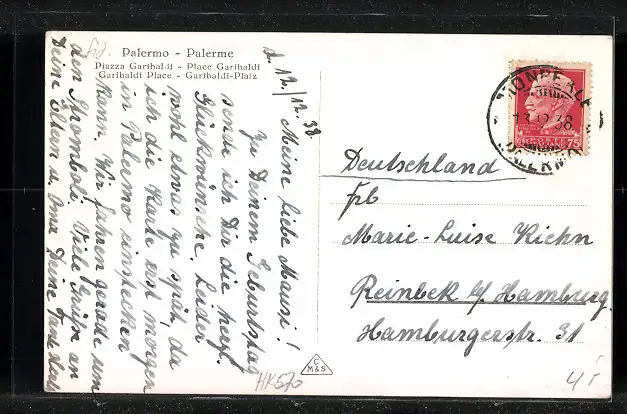 Palermo - Palerme
Piazza Garibaldi - Place Garibaldi
Garibaldi Place - Garibaldi-Platz
d. 12./12. 38
Meine liebe Mausi!
Zu Deinem Geburtstag
sende ich Dir die herzl.
Glückwünsche. Leider
wohl etwas zu spät, da
ich die Karte erst morgen
in Palermo einstecken
kann. Wir fahren gerade um
den Stromboli. Viele Grüße an
Deine Eltern u. Oma Deine
Deutschland
Frl
Marie-Luise Kiehn
Reinbek b/ Hamburg.
Hamburgerstr. 31
MONREALE
13.12.38
PALERMO
POSTE
75
C
M&S
HK570